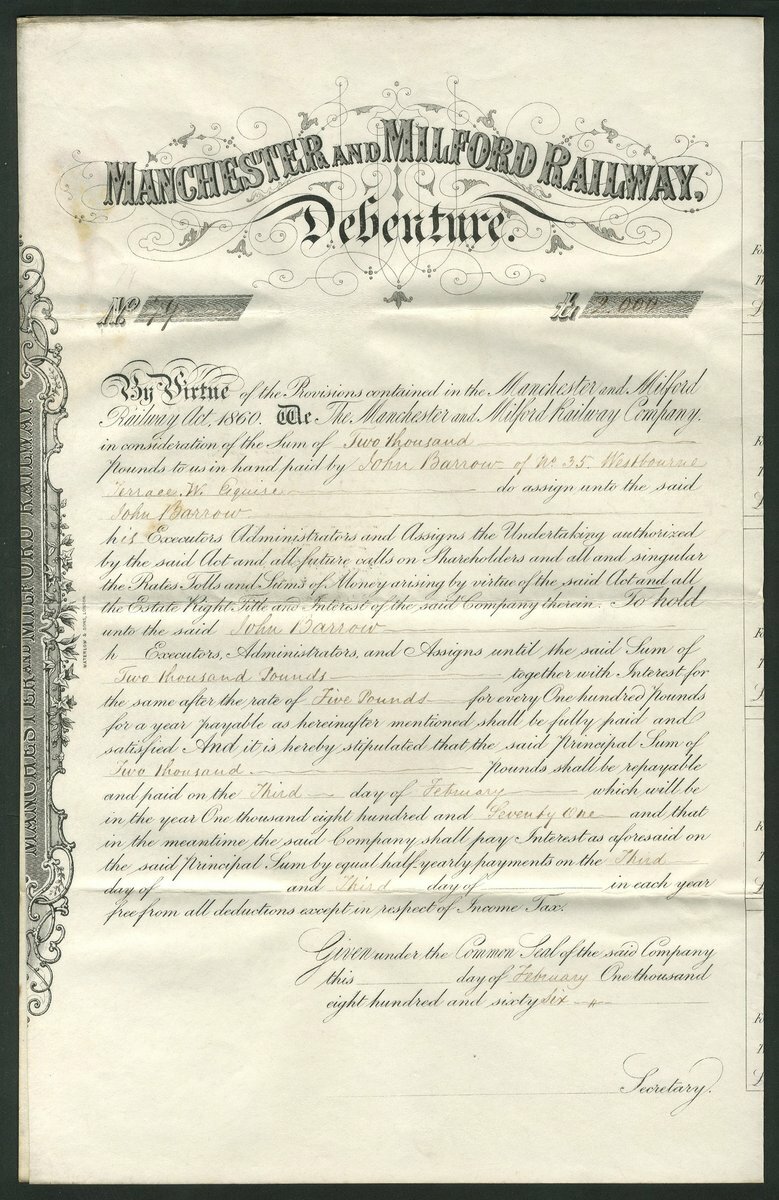 MANCHESTER AND MILFORD RAILWAY,
Debenture.
No 79
£ 2.000
By Virtue of the Provisions contained in the Manchester and Milford
Railway Act, 1860. We The Manchester and Milford Railway Company.
in consideration of the Sum of Two thousand
Pounds to us in hand paid by John Barrow of No 35. Westbourne
Terrace. W. Esquire do assign unto the said
John Barrow
his Executors Administrators and Assigns the Undertaking authorized
by the said Act and all future calls on Shareholders and all and singular
the Rates Tolls and Sums of Money arising by virtue of the said Act and all
the Estate Right Title and Interest of the said Company therein. To hold
unto the said John Barrow
h Executors, Administrators, and Assigns until the said Sum of
Two thousand Pounds together with Interest for
the same after the rate of Five Pounds for every One hundred Pounds
for a year payable as hereinafter mentioned shall be fully paid and
satisfied And it is hereby stipulated that the said Principal Sum of
Two thousand Pounds shall be repayable
and paid on the Third day of February which will be
in the year One thousand eight hundred and Seventy One and that
in the meantime the said Company shall pay Interest as aforesaid on
the said Principal Sum by equal half-yearly payments on the Third
day of and Third day of in each year
free from all deductions except in respect of Income Tax.
Given under the Common Seal of the said Company
this day of February One thousand
eight hundred and sixty six
Secretary.
MANCHESTER AND MILFORD RAILWAY
WATERLOW & SONS, LONDON.